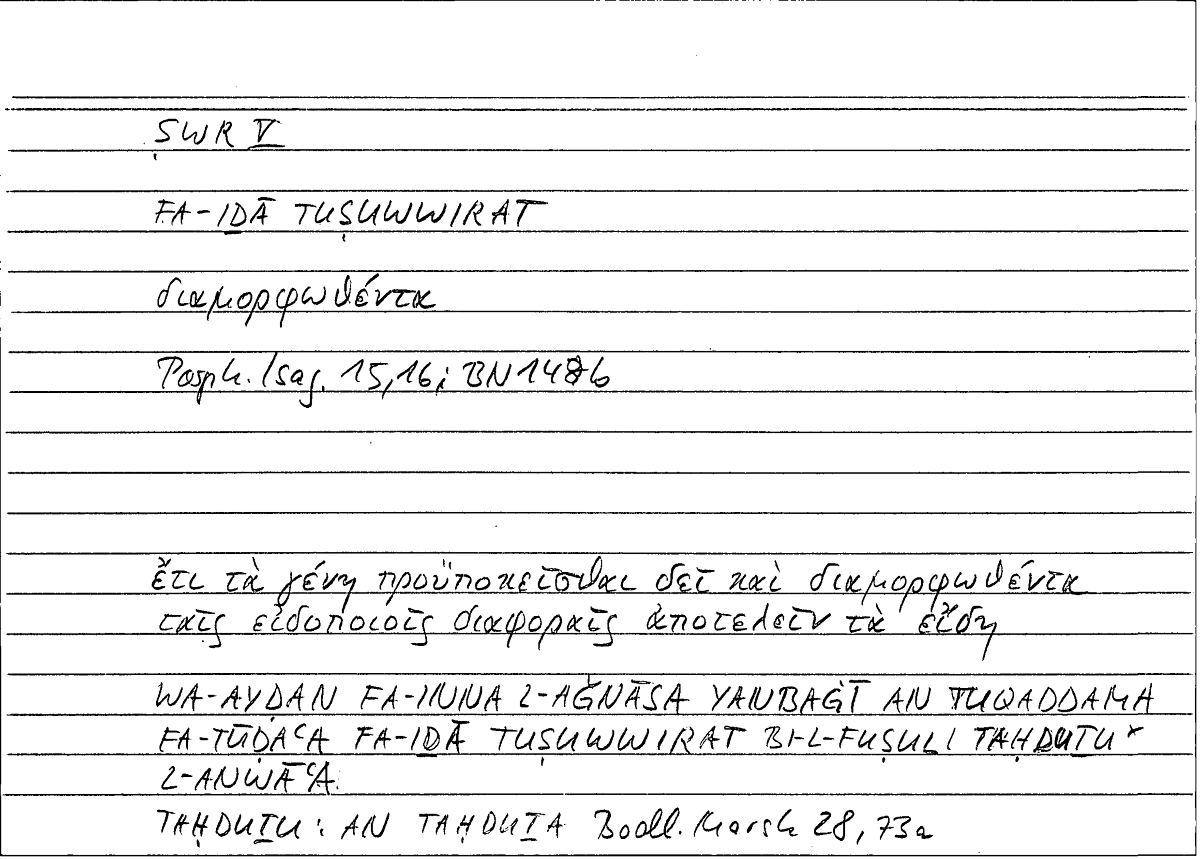 ṢWR V
FA-IḎĀ TUṢUWWIRAT
διαμορφωθέντα
Porph. Isag. 15,16; BN 148b
ἔτι τὰ γένη προϋποκεῖσθαι δεῖ καὶ διαμορφωθέντα
ταῖς εἰδοποιοῖς διαφοραῖς ἀποτελεῖν τὰ εἴδη
WA-AYḌAN FA-INNA L-AǦNĀSA YANBAĠĪ AN TUQADDAMA
FA-TŪḌAʿA FA-IḎĀ TUṢUWWIRAT BI-L-FUṢULI TAḤDUṮU*
L-ANWĀʿA
TAḤDUṮU: AN TAḤDUṮA Bodl. Marsh 28, 73a